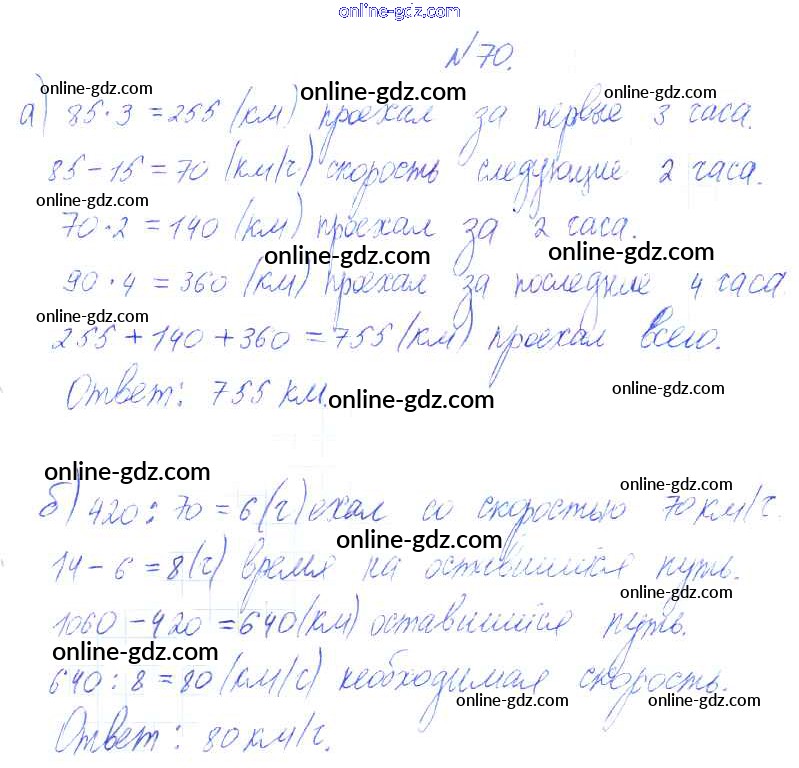 online-gdz.com
№70.
online-gdz.com online-gdz.com online-gdz.com
а) 85·3=255 (км) проехал за первые 3 часа.
85-15=70 (км/ч) скорость следующие 2 часа.
online-gdz.com
70·2=140 (км) проехал за 2 часа.
online-gdz.com online-gdz.com
90·4=360 (км) проехал за последние 4 часа.
online-gdz.com
255+140+360=755 (км) проехал всего.
Ответ: 755 км.
online-gdz.com online-gdz.com
online-gdz.com online-gdz.com
б) 420:70=6 (ч) ехал со скоростью 70 км/ч.
online-gdz.com
14-6=8 (ч) время на оставшийся путь.
online-gdz.com
1060-420=640 (км) оставшийся путь.
online-gdz.com
640:8=80 (км/с) необходимая скорость.
online-gdz.com online-gdz.com
Ответ: 80 км/ч.